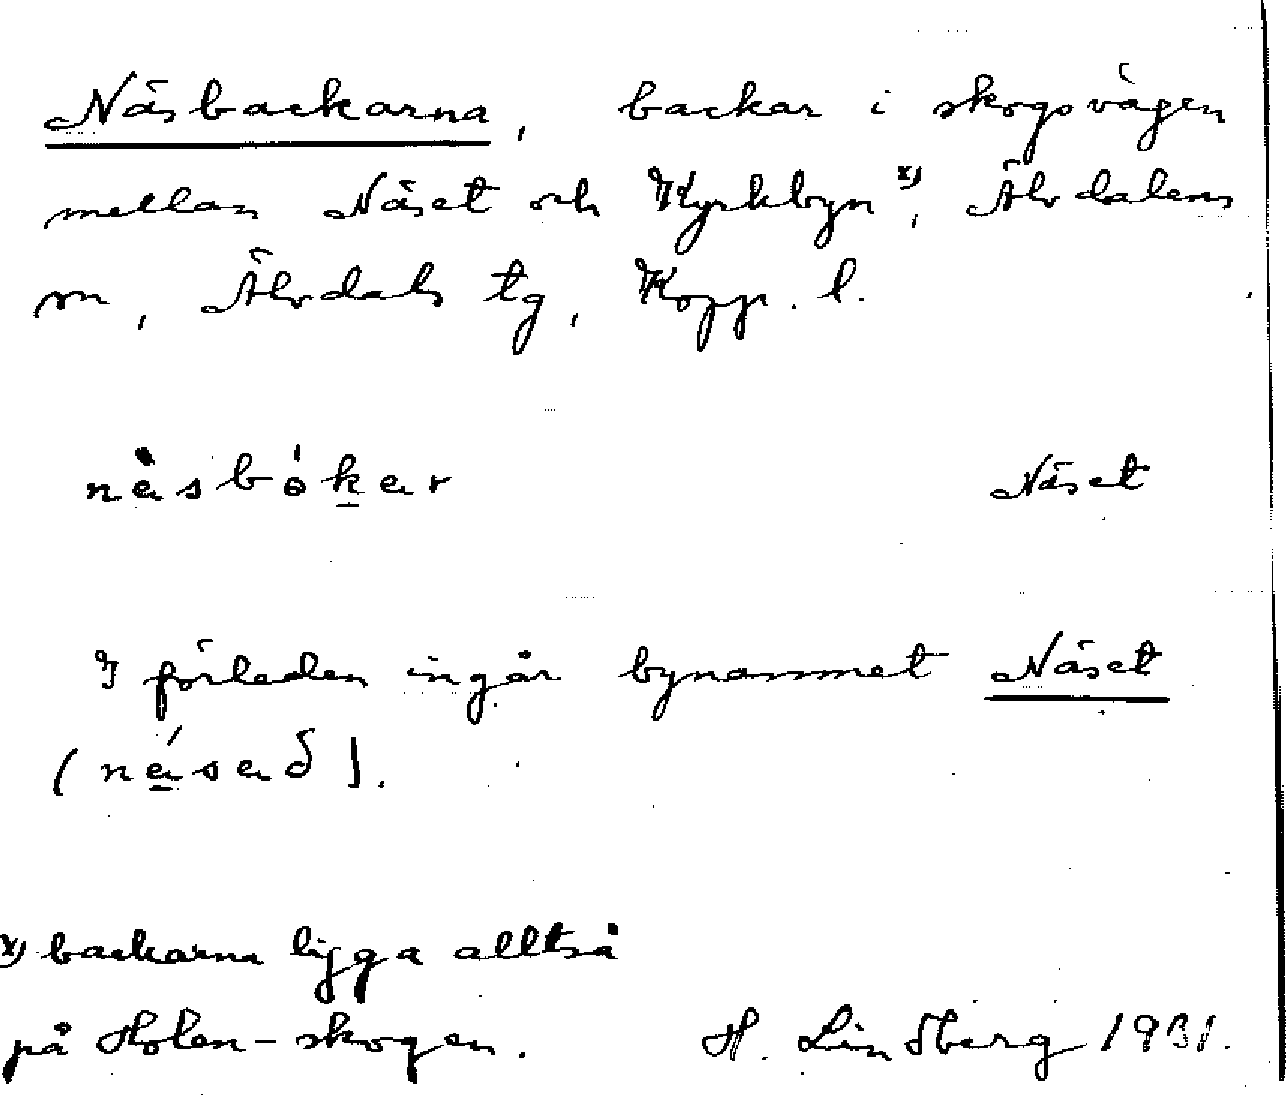 Näsbackarna, backar i skogsvägen
mellan Näset och Kyrkbyn x), Älvdalens
sn, Älvdals tg, Kopp. l.
nä̀sbókar Näset
I förleden ingår bynamnet Näset
(nä́sað).
x) backarna ligga alltså
på Holen-skogen. H. Lindberg 1931.